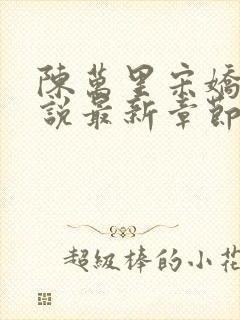 陳萬里宋嬌
說最新章節
超級棒的小花